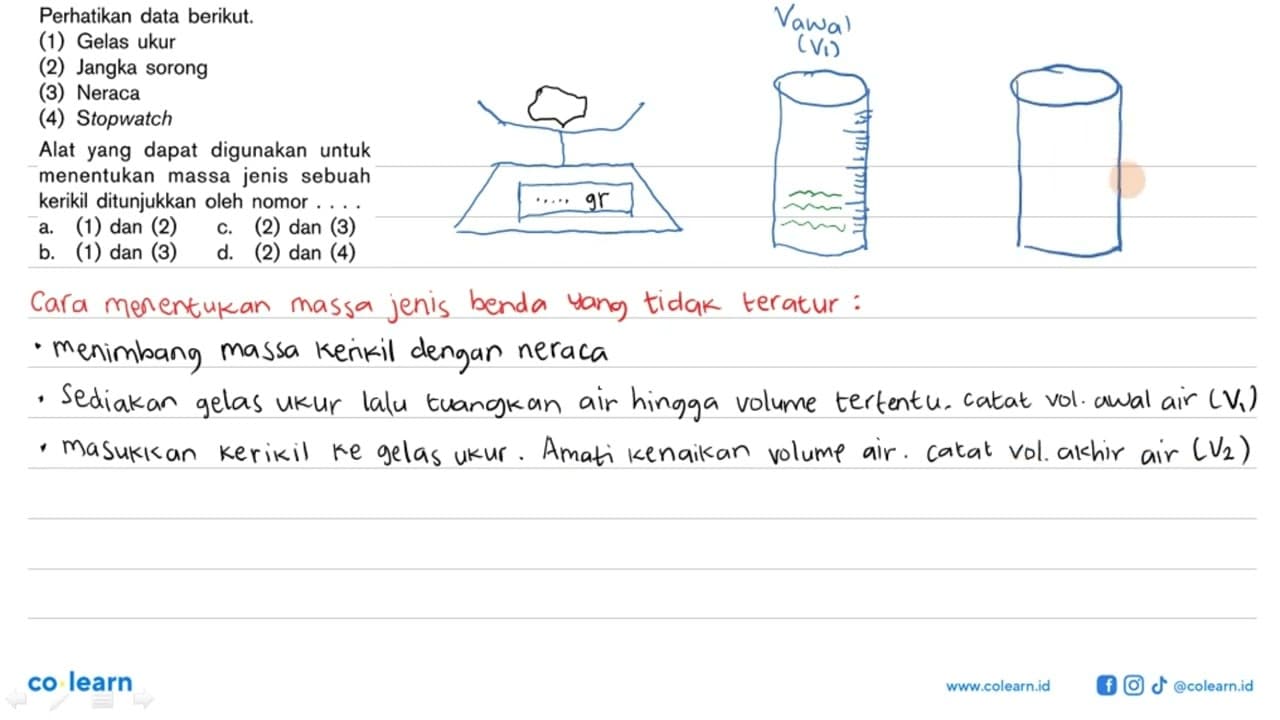 Perhatikan data berikut.
(1) Gelas ukur
(2) Jangka sorong
(3) Neraca
(4) Stopwatch
Alat yang dapat digunakan untuk
menentukan massa jenis sebuah
kerikil ditunjukkan oleh nomor . . . .
a. (1) dan (2) c. (2) dan (3)
b. (1) dan (3) d. (2) dan (4)
..... gr
Vawal
(V1)
Cara menentukan massa jenis benda yang tidak teratur :
• menimbang massa kerikil dengan neraca
• Sediakan gelas ukur lalu tuangkan air hingga volume tertentu. catat vol. awal air (V1)
• masukkan kerikil ke gelas ukur. Amati kenaikan volume air. catat vol. akhir air (V2)
co learn
www.colearn.id
@colearn.id